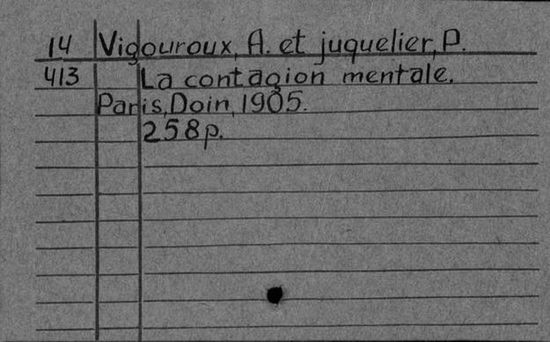 14 Vigouroux, A. et juquelier, P.
413 La contagion mentale.
Paris, Doin, 1905.
258p.